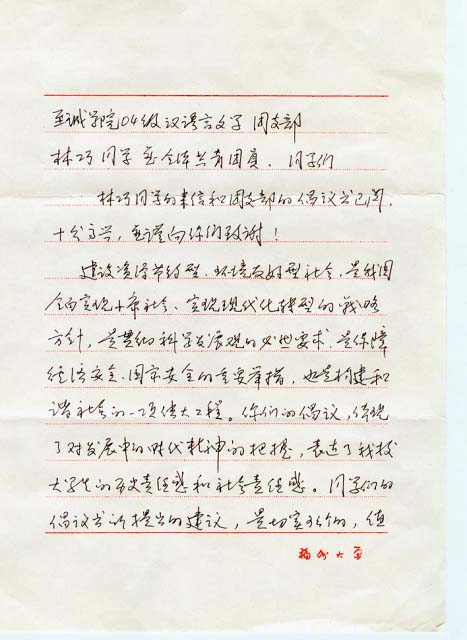 至诚学院04级汉语言文学团支部
林巧同学暨全体共青团员、同学们
林巧同学的来信和团支部的倡议书已阅,
十分高兴,在谨向你们致谢!
建设资源节约型、环境友好型社会,是我国
全面实现小康社会、实现现代化转型的战略
方针,是贯彻科学发展观的必然要求,是保障
经济安全、国家安全的重要举措,也是构建和
谐社会的一项伟大工程。你们的倡议,体现
了对发展中的时代精神的把握,表达了我校
大学生的历史责任感和社会责任感。同学们的
倡议书所提出的建议,是切实可行的,值
福州大学